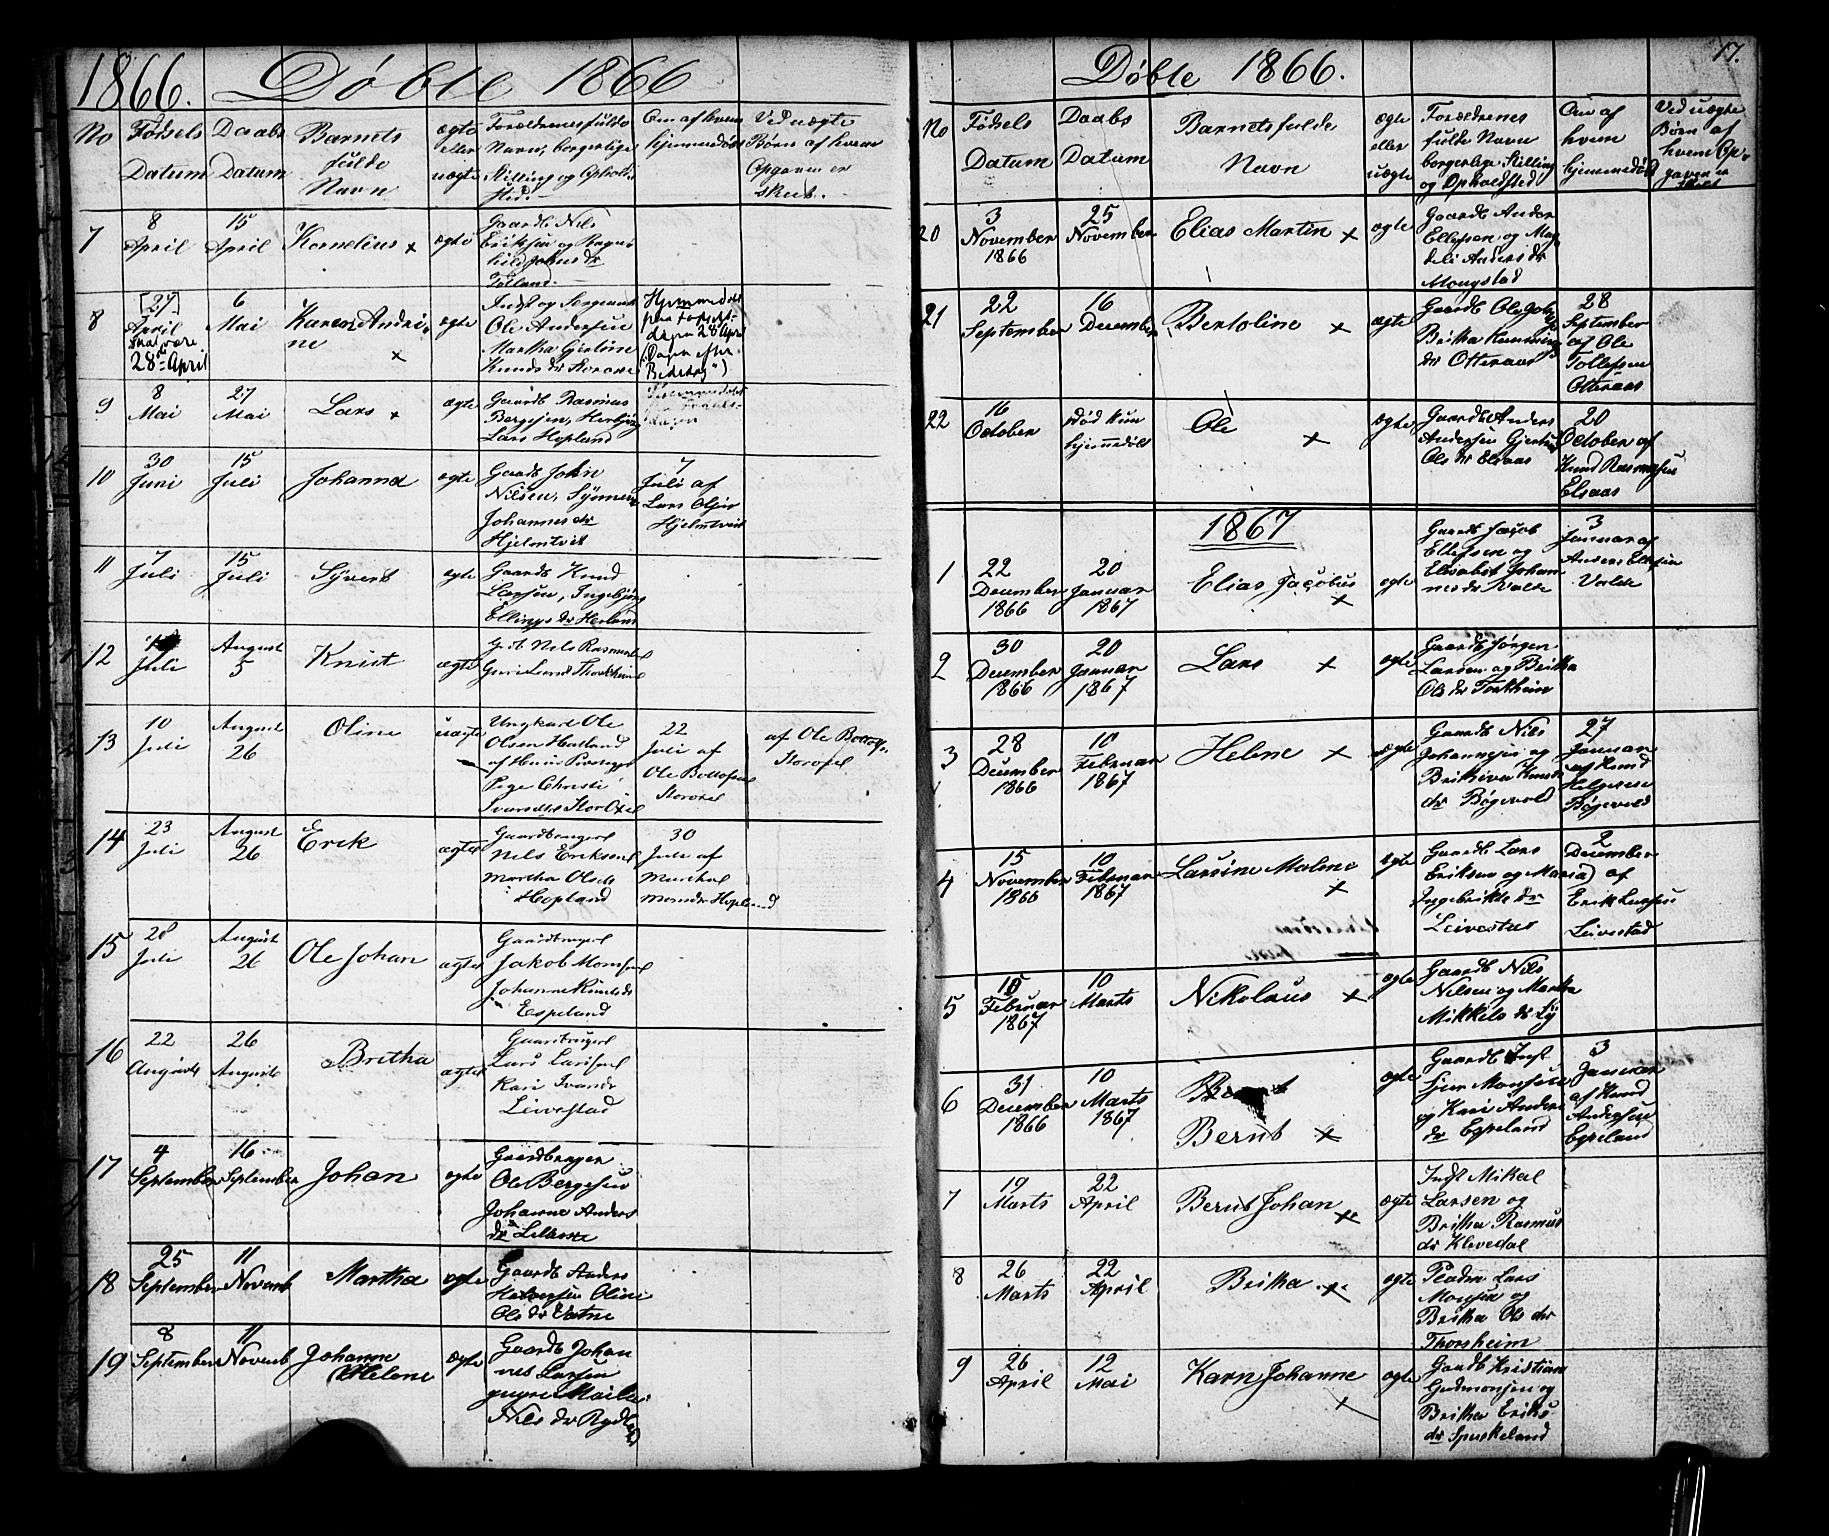 1866. Døbte 1866
No
Fødsels Datum
Daabs Datum
Barnets fulde Navn
ægte eller uægte
Forældrenes fulde Navn, borgerlige Stilling og Opholdsted.
Om af hvem hjemmedøbt
Ved uægte Børn af hvem Opgaven er skeet.
7
8 April
15 April
Kornelius x
ægte
Gaardb Nils
Eriksen og Ragn
hild Johns dr
8
[27]
April
skal være
28de April
6 Mai
Karen Andri
ne x
ægte
Indst og Sergeant
Ole Andersen
Martha Gjertine
Knuds dr
Hjemmedøbt
paa Fødsels-
dagen 28 April
("Dagen efter
Bededag")
9
8 Mai
27 Mai
Lars x
ægte
Gaardb Rasmus
Bergesen,
Lars Hopland
Hjemmedøbt
paa Fødsels-
dagen
10
30 Juni
15 Juli
Johanna
ægte
Gaardb John
Nilsen, Synneve
Johannes dr
Hjelmtveit
7
Juli af
Lars
Hjelmtveit
11
7 Juli
15 Juli
Syvert
ægte
Gaardb Knud
Larsen, Ingebjørg
Ellings dr Herland
12
Juli
August 5
Knut
ægte
G.b Nils Rasmussen
13
10 Juli
August 26
Oline
uægte
Ungkarl Ole
Olsen Hatland
Pige Christi
22
Juli af
Ole
af Ole
14
23 Juli
August 26
Erik
ægte
Gaardbruger
Nils Eriksen
Martha Olsdr
Hopland
30
Juli af
Monsdr Hopland
15
28 Juli
August 26
Ole Johan
ægte
Gaardbruger
Jakob Monsen
Johanne Knutsdr
Espeland
16
22 August
26 August
Britha
ægte
Gaardbruger
Lars Larsen
Kari Ivarsdr
Leivestad
17
4 September
16 September
Johan
ægte
Gaardbruger
Ole Bergesen
Johanne Anders
dr
18
25 September
11 Novemb
Martha
ægte
Gaardb Anders
Halvorsen Oline
Ols dr
19
8 September
11 Novemb
Johanne
Helene
ægte
Gaardb Johan
nes Larsen
Nils dr
17.
Døbte 1866.
No
Fødsels Datum
Daabs Datum
Barnets fulde Navn
ægte eller uægte
Forældrenes
fulde Navn
borgerlige Stilling
og Opholdsted
Om af
hvem
hjemmedøbt
Ved uægte
Børn af
hvem Op-
gaven er
skeet
20
3
November
1866
25
November
Elias Martin x
ægte
Gaardb Anders
Ellefsen og Mag
deli Anders dr
Mongstad
21
22
September
16
December
Bertoline x
ægte
Gaardb Ole
Britha
dr Otteraas
28
September
af Ole
Tollefsen
Otteraas
22
16
October
død kun
hjemmedøbt
Ole x
ægte
Gaardb Anders
Andersen
Ols dr Elsaas
20
October af
Knud Rasmusen
Elsaas
1867
1
22
December
1866
20
Januar
1867
Elias Jacobus x
ægte
Gaardb Jacob
Ellefsen og
Elisabet Johan
nes dr
3
Januar af
Anders Ellefsen
2
30
December
1866
20
Januar
1867
Lars x
ægte
Gaardb Jørgen
Larsen og Britha
Ols dr
3
28
December
1866
10
Februar
1867
Helene x
ægte
Gaardb Nils
Johannesen og
Knuds
dr Bøgevold
27
Januar
af Knud
Helgesen
Bøgevold
4
15
November
1866
10
Februar
1867
Larsine Malene x
ægte
Gaardb Lars
Eriksen og Maria
Ingebrikte dr
Leivestad
2
December
af
Erik Larssen
Leivestad
5
15
Februar
1867
10
Marts
Nikolaus x
ægte
Gaardb Nils
Nilsen og Martha
Mikkels dr
6
31
December
1866
10
Marts
1867
Bernt x
ægte
Monsen
og Kari Anders
dr Espeland
3
Januar
af Knud
Andersen
Espeland
7
19
Marts
22
April
Bernt Johan x
ægte
Indst Mikal
Larsen og
Britha Rasmus
dr Klevedal
8
26
Marts
22
April
Britha x
ægte
Pladsm Lars
Monsen og
Britha Ols dr
Thorsheim
9
26
April
12
Mai
Karn Johanne x
ægte
Gaardb Kristian
Gudmonsen og
Britha Eriks
dr Spurkeland